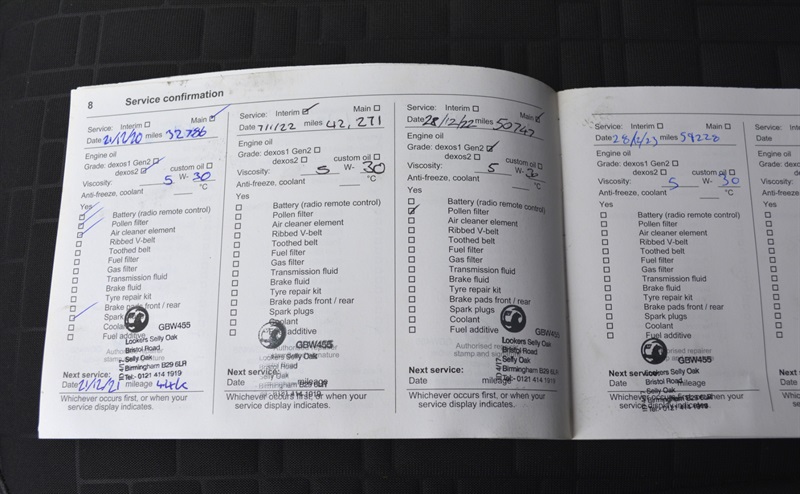 8 Service confirmation
Service: Interim Main
Date 21/12/20 miles 32786
Engine oil
Grade: dexos1 Gen2
dexos2 custom oil
Viscosity: 5 W- 30
Anti-freeze, coolant °C
Yes
Battery (radio remote control)
Pollen filter
Air cleaner element
Ribbed V-belt
Toothed belt
Fuel filter
Gas filter
Transmission fluid
Brake fluid
Tyre repair kit
Brake pads front / rear
Spark
Coolant
Fuel additive
GBW455
Lookers Selly Oak
Bristol Road
Selly Oak
Birmingham B29 6LR
Tel:- 0121 414 1919
Next service:
Date 21/12/21 mileage
Whichever occurs first, or when your
service display indicates.
Service: Interim Main
Date 7/1/22 miles 42,271
Engine oil
Grade: dexos1 Gen2
dexos2 custom oil
Viscosity: 5 W- 30
Anti-freeze, coolant °C
Yes
Battery (radio remote control)
Pollen filter
Air cleaner element
Ribbed V-belt
Toothed belt
Fuel filter
Gas filter
Transmission fluid
Brake fluid
Tyre repair kit
Brake pads front / rear
Spark plugs
Coolant
Fuel additive
GBW455
Lookers Selly Oak
Bristol Road
Selly Oak
Birmingham B29 6LR
Next service:
Date mileage
Whichever occurs first, or when your
service display indicates.
Service: Interim Main
Date 28/12/22 miles 50747
Engine oil
Grade: dexos1 Gen2
dexos2 custom oil
Viscosity: 5 W- 30
Anti-freeze, coolant °C
Yes
Battery (radio remote control)
Pollen filter
Air cleaner element
Ribbed V-belt
Toothed belt
Fuel filter
Gas filter
Transmission fluid
Brake fluid
Tyre repair kit
Brake pads front / rear
Spark plugs
Coolant
Fuel additive
GBW455
Authorised repairer
stamp and
Lookers Selly Oak
Bristol Road
Selly Oak
Birmingham B29 6LR
Tel:- 0121 414 1919
Next service:
Date mileage
Whichever occurs first, or when your
service display indicates.
Service: Interim Main
Date 28/12/23 miles 59228
Engine oil
Grade: dexos1 Gen2
dexos2 custom oil
Viscosity: 5 W- 30
Anti-freeze, coolant °C
Yes
Battery (radio remote control)
Pollen filter
Air cleaner element
Ribbed V-belt
Toothed belt
Fuel filter
Gas filter
Transmission fluid
Brake fluid
Tyre repair kit
Brake pads front / rear
Spark plugs
Coolant
Fuel additive
GBW455
Lookers Selly Oak
Bristol Road
Selly Oak
Birmingham B29 6LR
Tel:- 0121 414 1919
Next service:
Date mileage
Whichever occurs first, or when your
service display indicates.
Service:
Date
Engine oil
Grade:
Viscosity:
Anti-freeze
Yes
Next
Date
Whichever
service